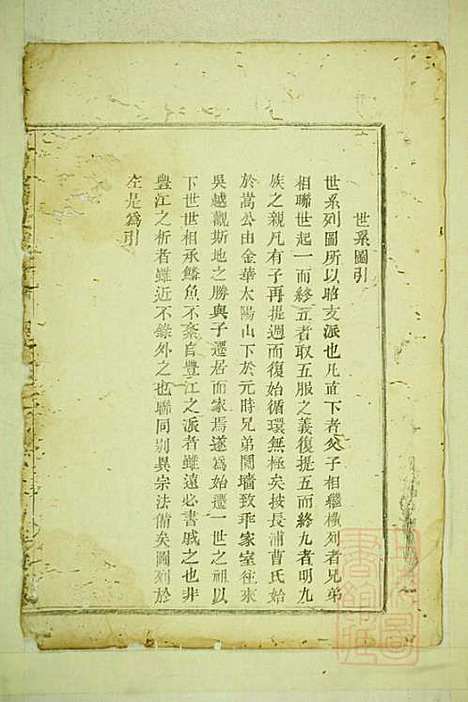 世系圖引
世系列圖所以昭支派也凡直下者父子相繼橫列者兄弟
相聯世起一而終五者取五服之義復提五而終九者明九
族之親凡有子再提週而復始循環無極矣按長浦曹氏始
於嵩公由金華太陽山下於元時兄弟鬩墻致乖家室往來
吳越觀斯地之勝與子遷居而家焉遂為始遷一世之祖以
下世世相承鱗魚不紊自豐江之派者雖遠必書戚之也非
豐江之析者雖近不錄外之也聯同別異宗法備矣圖列於
左是為引
書圖